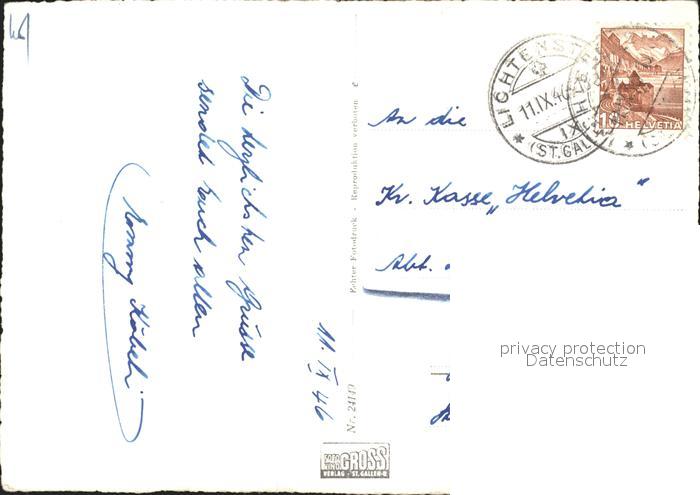 Die herzlichsten Grüsse
sendet Euch allen
11. IX 46
Echter Fotodruck - Reproduktion verboten
Nr. 24149
FOTO UND GROSS
VERLAG - ST. GALLEN
LICHTENSTE
11.IX.46
(ST.GALLEN)
10 HELVETIA
An die
Kr. Kasse „Helvetia"
Abt.
privacy protection
Datenschutz